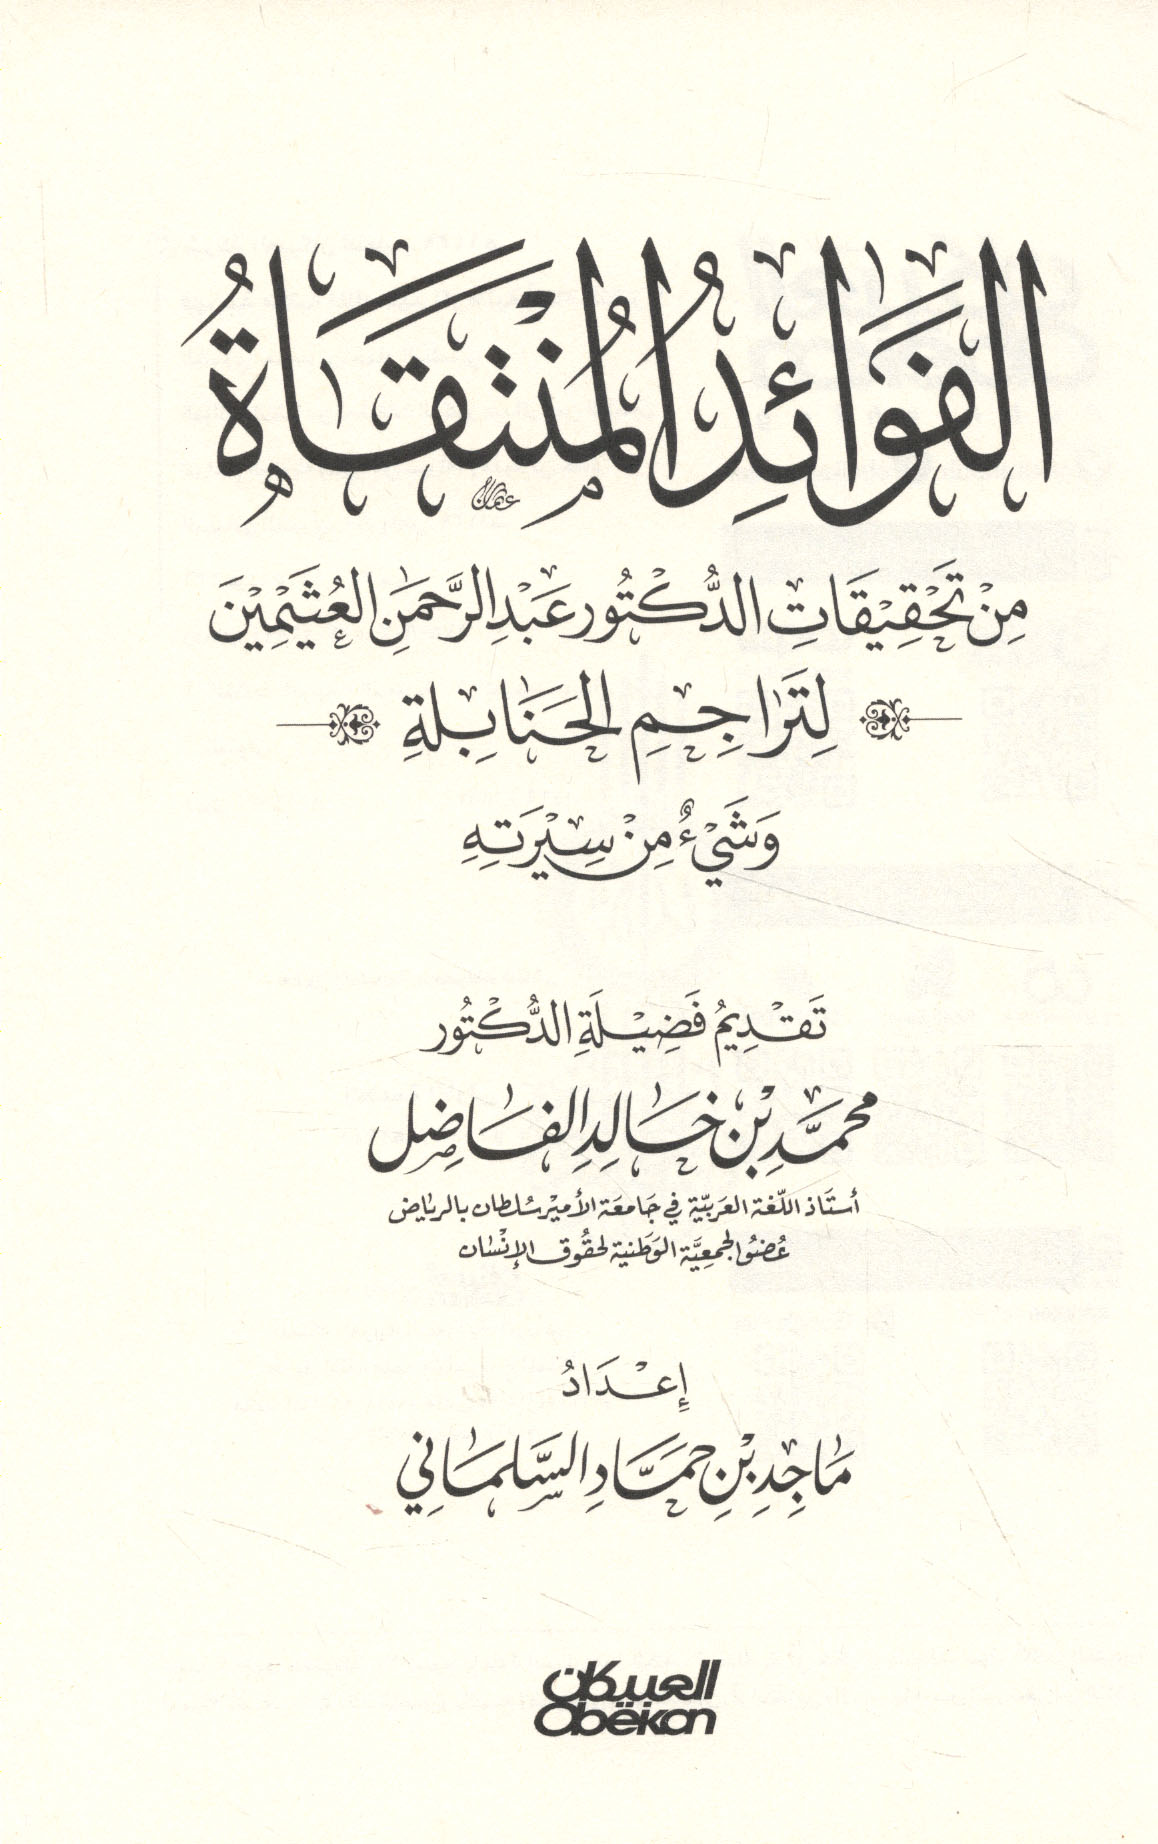 الفَوَائِدُ المُنْتَقَاةُ
مِنْ تَحْقِيْقَاتِ الدُّكْتُور عَبْدِ الرَّحمَنِ العُثَيْمِيْنَ
لِتَرَاجِمِ الحَنَابِلَةِ
وَشَيْءٌ مِنْ سِيْرَتِهِ
تَقْدِيمُ فَضِيْلَةِ الدُّكْتُور
محمَّدِ بْنِ خَالِدِ الفَاضِل
أستَاذ اللّغة العَربيّة في جَامعَة الأميْر سُلطان بالرياض
عُضوُ الجمعِيَّة الوَطنية لحقُوق الإنْسان
إِعْدَادُ
مَاجِدِ بْنِ حمَّادِ السَّلمَانِي
العبيكان
Obëkan